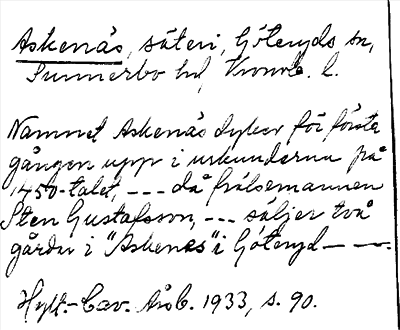 Askenäs, säteri, Göteryds sn,
Sunnerbo hd, Kronob. l.
Namnet Askenäs dyker för första
gången upp i urkunderna på
1450-talet, --- då frälsemannen
Sten Gustafsson, --- säljer två
gårdar i "Askenes" i Göteryd ---.
Hylt.-Cav. Årsb. 1933, s. 90.